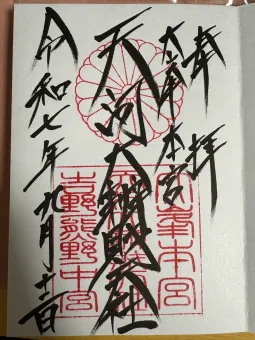 奉拝
大峯本宮
天河大辨財天社
令和七年九月十二日
大峯本宮
吉野熊野中宮